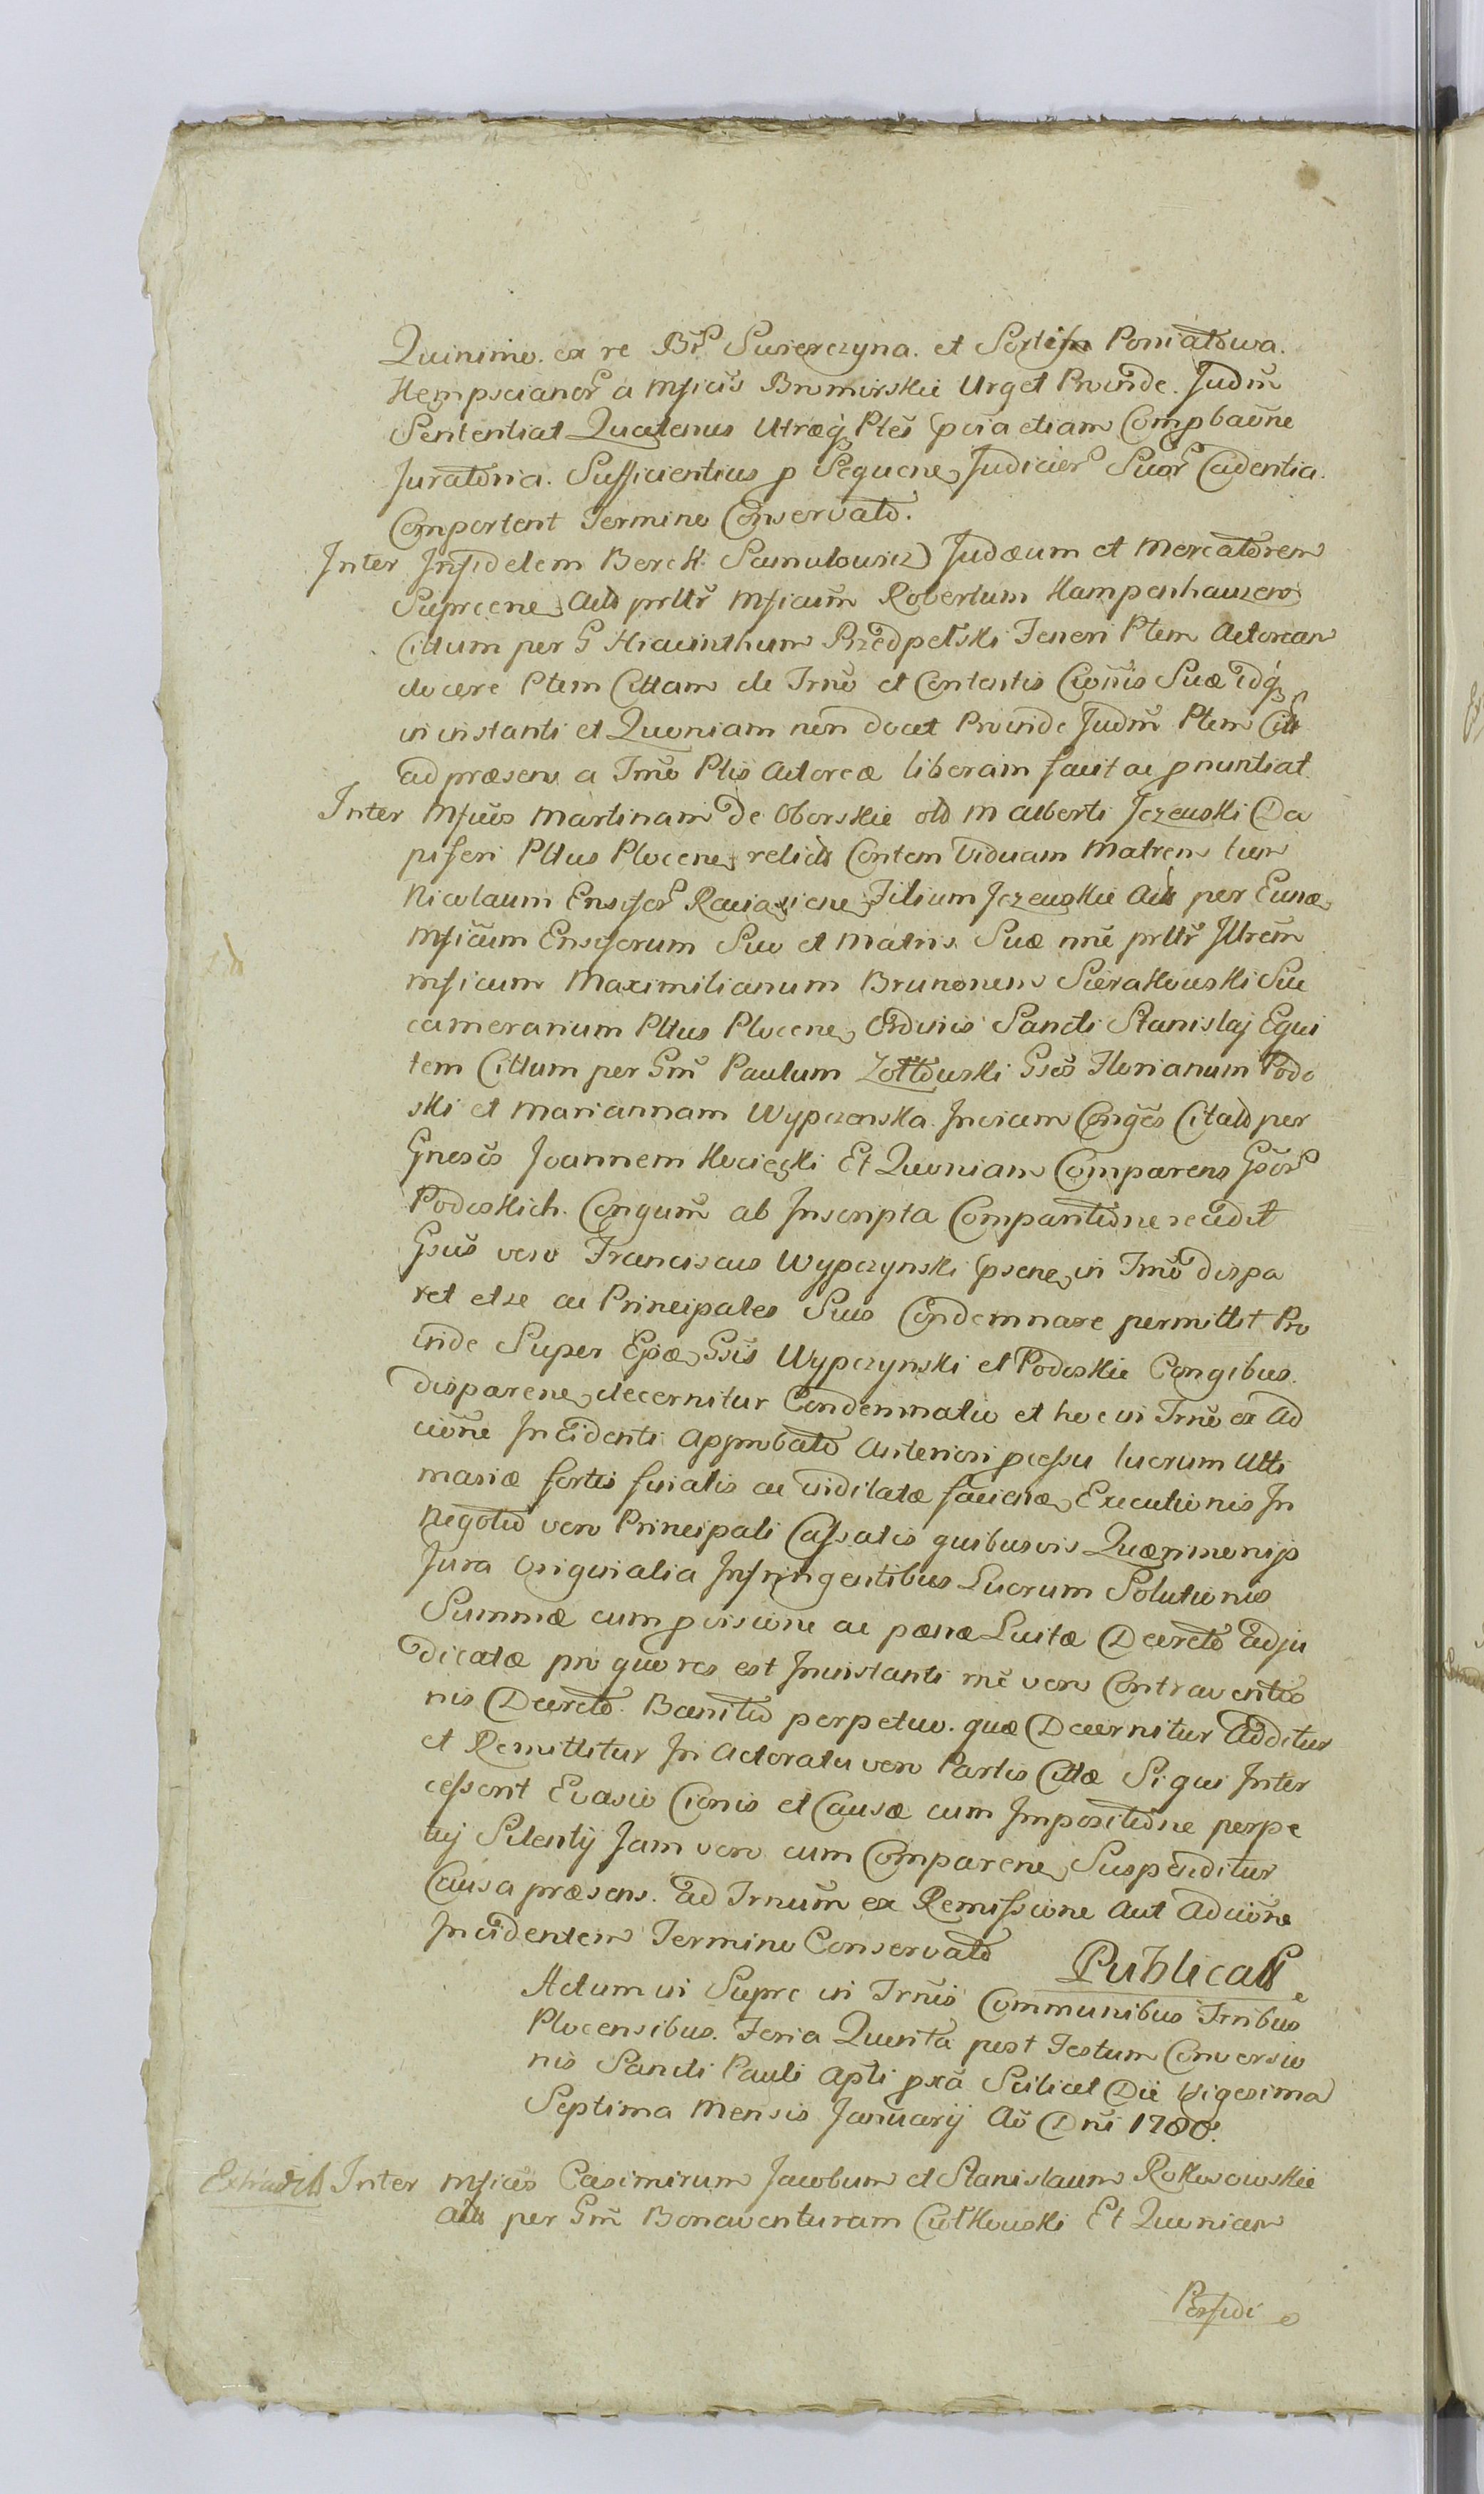 Quinimo. ex re Br Swierczyna. et Sortis Poniatowa.
Hempscianor a Mficis Bromirskie Urget Proinde. Judm
Sententiat Quatenus Utræq Ptes pvia etiam Compbaone
Juratoria. Sufficientius p Sequene Judicior Suor Cadentia.
Comportent Termino Conservato.
Inter Infidelem Berek Samulowicz Judæum et Mercatorem
Supreene Acto prllr Mficum Robertum Hampenhauzen
Cittum per G Hiacinthum Przedpelski Teneri Ptem Actorean
docere Ptem Cittam de Trno et Contentis Cionis Suæ idq
in instanti et Quoniam non docet Proinde Judm Ptem Citt
ad præsens a Trno Ptis Actoreæ liberam facit ac pnuntiat
Inter Mficos Martinam de Oborskie olo M Alberti Jezewski Da
piferi Pttus Plocene relict Contem Viduam Matrem tum
Nicolaum Ensifer Filium Jezewskie Act per Eund
Mficum Ensiferum Suo et Matris Suæ nne prllr Jllrem
Mficum Maximilianum Brunonem Sierakowski Suc
camerarium Pttus Plocene Ordinis Sancti Stanislaj Equi
tem Cittum per Gm Paulum Zołtowski Gsos Florianum Podo
ski et Mariannam Wypczenska Invicem Conges Citato per
Gnosos Joannem Kociecki Et Quoniam Comparens Gsor
Podoskich. Congum ab Inscripta Comparitione recedit
Gsus vero Franciscus Wypczynski psene in Trno dispa
ret et se ac Principales Suos Condemnare permittit Pro
inde Super Gsis Wypczynski et Podoskie Congibus.
disparene decernitur Condemnatio et hoc in Trno ex Ad
cione Incidenti Approbato Anteriori pcessu lucrum Ulti
mariæ fortis finalis ac indilatæ faciend Executionis In
Negotio vero Principali Cassatis quibusvis Quærimonijs
Jura Originalia Infringentibus Lucrum Solutionis
Summæ cum pvisione ac pænæ Luitæ Decreto adju
dicatæ pro quo res est Ininstanti rne vero Contraventio
nis Decreto. Banitio perpetuo. quæ Decernitur Additur
et Remittitur In Actoratu vero Partis Cittæ Si qui Inter
cesserit Evasio Cionis et Causæ cum Impositione perpe
tuj Silentij Jam vero cum Comparene Suspenditur
Causa præsens. ad Trnum ex Remissione Aut Adcione
Incidentem Termino Conservato
Publicat
Actum in Supre in Trnis Communibus Trribus
Plocensibus. Feria Quinta post Festum Conversio
nis Sancti Pauli Apti pxa Scilicet Die Vigesima
Septima Mensis Januarij Ao Dni 1780.
Extradit Inter Mficos Casimirum Jacobum et Stanislaum Rokosowskie
Act per Gm Bonaventuram Ciołkowski Et Quoniam